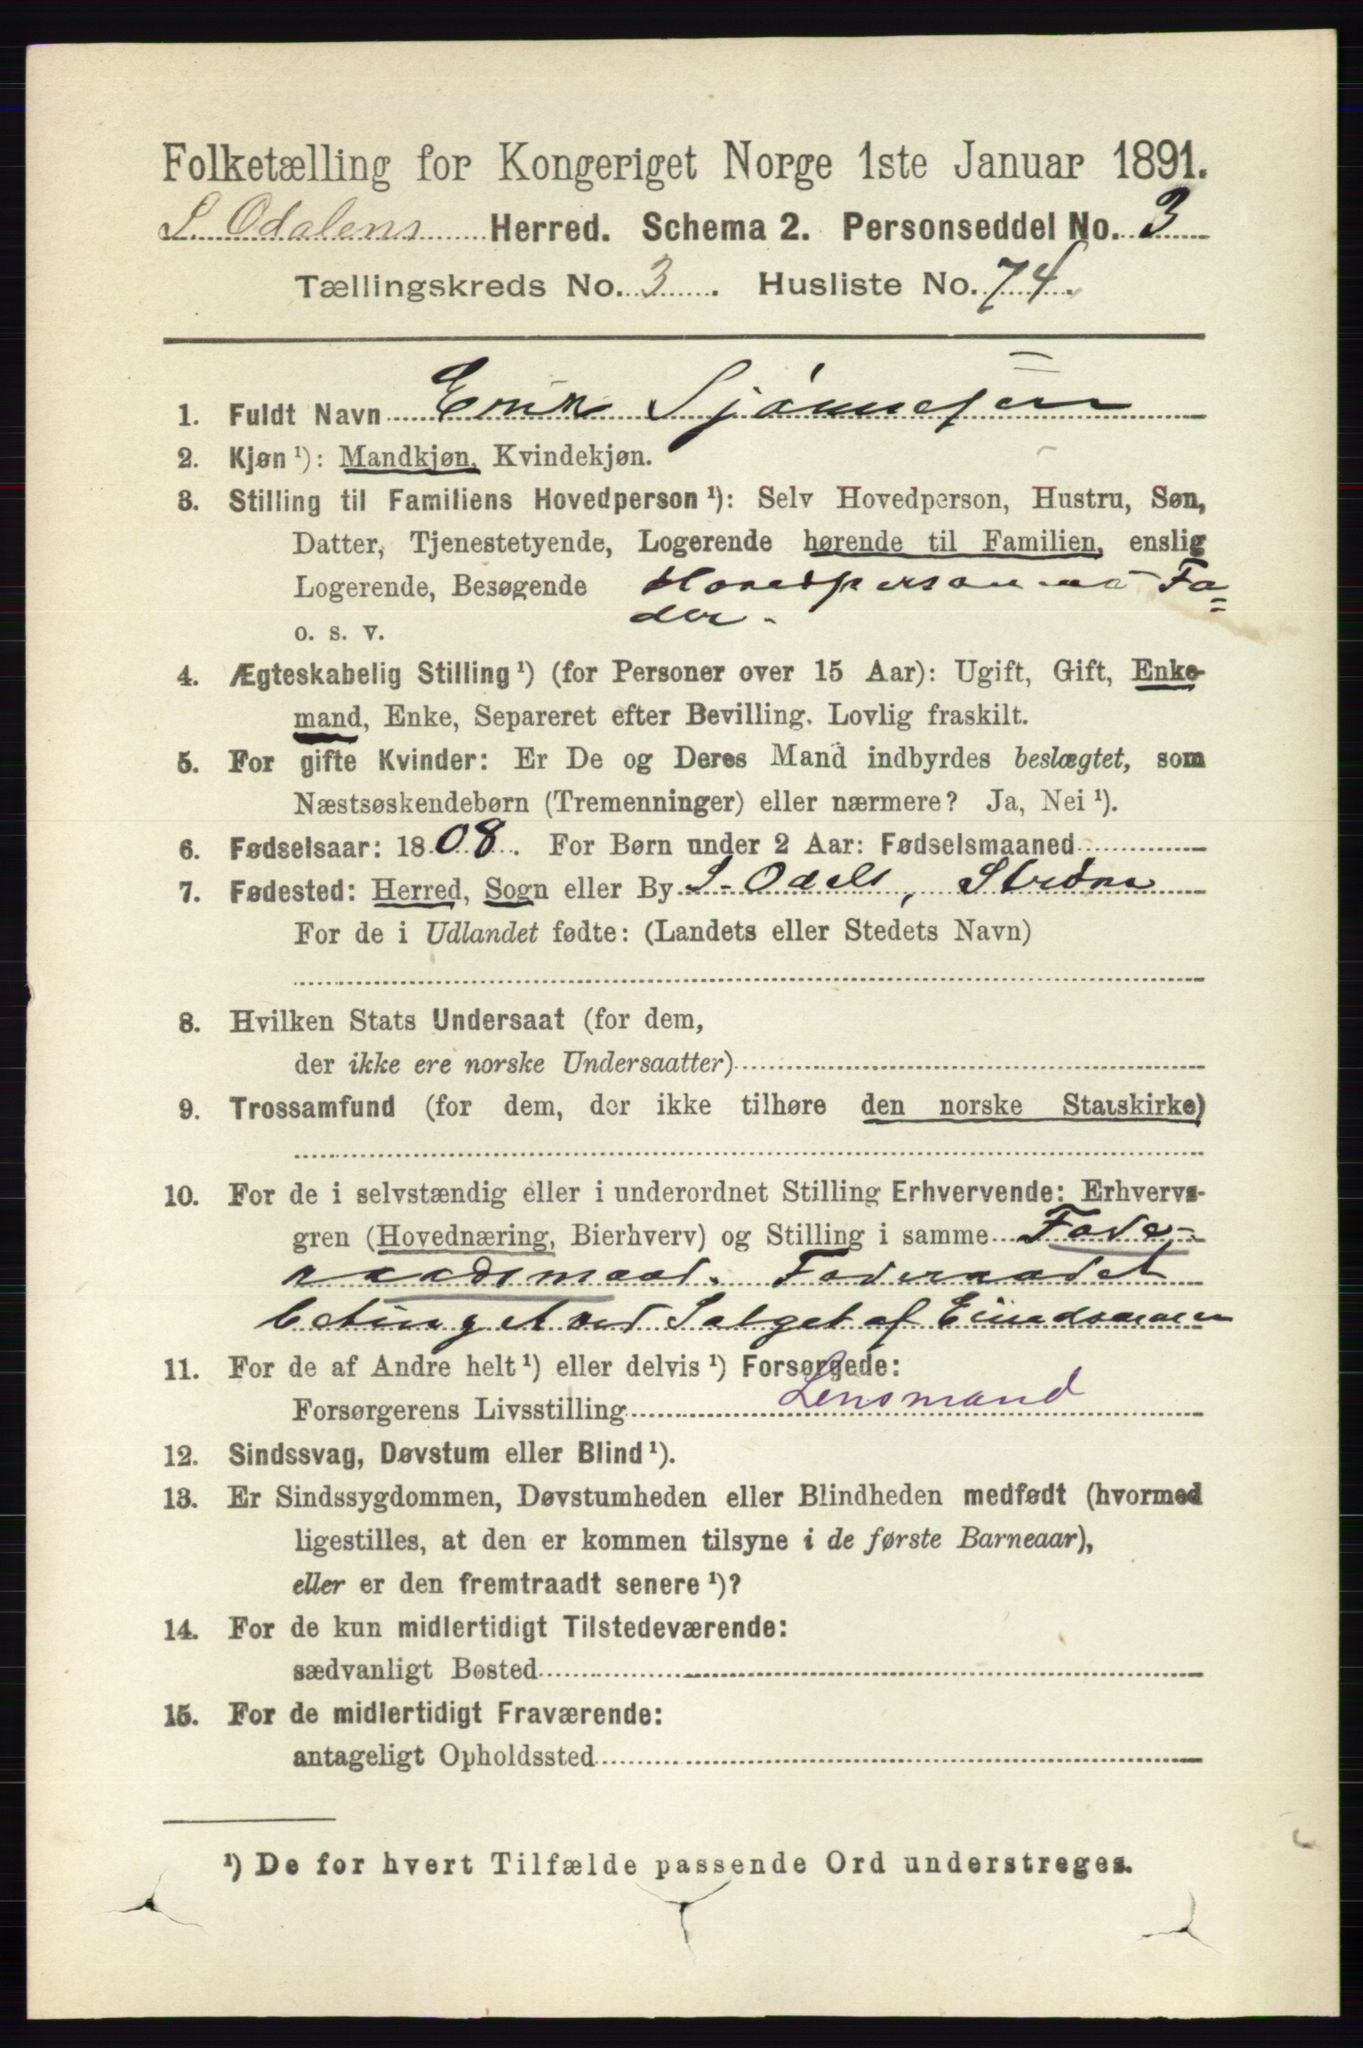 Folketælling for Kongeriget Norge 1ste Januar 1891.
S. Odalens Herred. Schema 2. Personseddel No. 3
Tællingskreds No. 3. Husliste No. 74.
1. Fuldt Navn Erik
2. Kjøn ¹): Mandkjøn, Kvindekjøn.
3. Stilling til Familiens Hovedperson ¹): Selv Hovedperson, Hustru, Søn,
Datter, Tjenestetyende, Logerende hørende til Familien, enslig
Logerende, Besøgende Hovedpersonens Fa=
o. s. v. der.
4. Ægteskabelig Stilling ¹) (for Personer over 15 Aar): Ugift, Gift, Enke-
mand, Enke, Separeret efter Bevilling. Lovlig fraskilt.
5. For gifte Kvinder: Er De og Deres Mand indbyrdes beslægtet, som
Næstsøskendebørn (Tremenninger) eller nærmere? Ja, Nei ¹).
6. Fødselsaar: 1808. For Børn under 2 Aar: Fødselsmaaned
7. Fødested: Herred, Sogn eller By S. Odals, Strøm
For de i Udlandet fødte: (Landets eller Stedets Navn)
8. Hvilken Stats Undersaat (for dem,
der ikke ere norske Undersaatter)
9. Trossamfund (for dem, der ikke tilhøre den norske Statskirke)
10. For de i selvstændig eller i underordnet Stilling Erhvervende: Erhvervs-
gren (Hovednæring, Bierhverv) og Stilling i samme Fode-
raadsmand. Foderaadet
betinget ved Salget af Eiendommen
11. For de af Andre helt ¹) eller delvis ¹) Forsørgede:
Forsørgerens Livsstilling Lensmand
12. Sindssvag, Døvstum eller Blind ¹).
13. Er Sindssygdommen, Døvstumheden eller Blindheden medfødt (hvormed
ligestilles, at den er kommen tilsyne i de første Barneaar),
eller er den fremtraadt senere ¹)?
14. For de kun midlertidigt Tilstedeværende:
sædvanligt Bosted
15. For de midlertidigt Fraværende:
antageligt Opholdssted
¹) De for hvert Tilfælde passende Ord understreges.